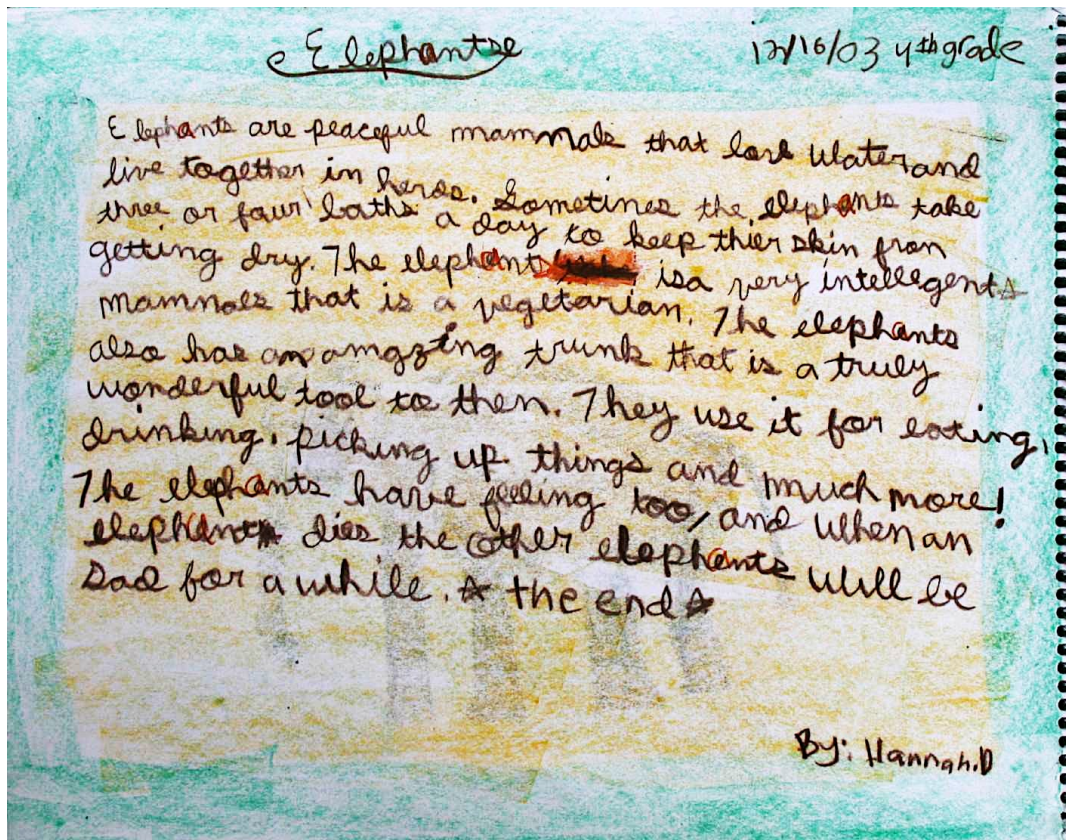 Elephants
12/16/03 4th grade
Elephants are peaceful mammals that love Water and
live together in herds. Sometimes the elephants take
three or four baths a day to keep thier skin from
getting dry. The elephant is a very intellegent
mammals that is a vegetarian. The elephants
also has an amazing trunk that is a truly
wonderful tool to them. They use it for eating,
drinking, picking up things and much more!
The elephants have feeling too, and When an
elephant dies the other elephants Will be
sad for a while. ☆ the end ☆
By: Hannah.D